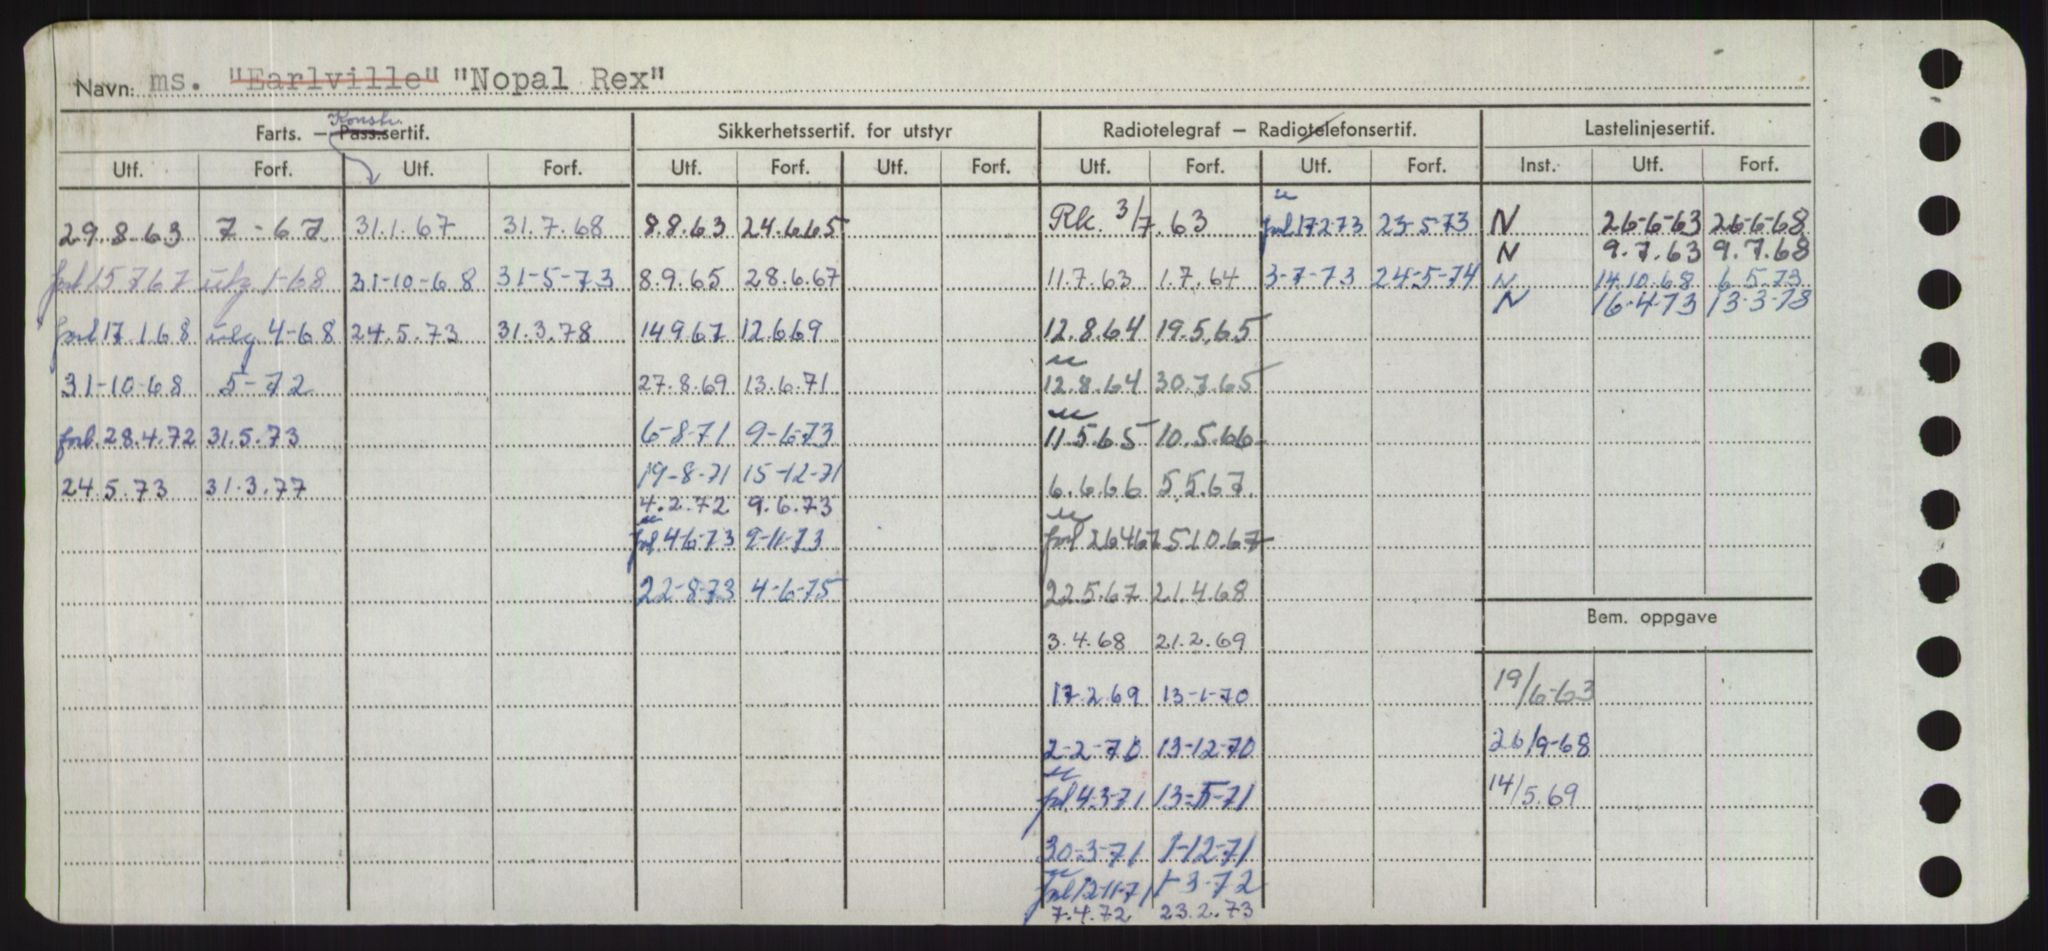 Navn: ms. "Earlville" "Nopal Rex"
Konstr.
Farts. — Pass.sertif. Sikkerhetssertif. for utstyr Radiotelegraf — Radiotelefonsertif. Lastelinjesertif.
Utf. Forf. Utf. Forf. Utf. Forf. Utf. Forf. Utf. Forf. Utf. Forf. Inst. Utf. Forf.
29.8.63 7-67 31.1.67 31.7.68 8.8.63 24.6.65 Rk. 3/7.63 forl 17-2-73 23-5-73 N 26-6-63 26-6-68
N 9.7.63 9.7.68
forl 15.7.67 utg 1-68 31-10-68 31-5-73 8.9.65 28.6.67 11.7.63 1.7.64 3-7-73 24-5-74 N 14.10.68 6.5.73
N 16-4-73 13-3-78
forl 17.1.68 utg. 4-68 24.5.73 31.3.78 14.9.67 12.6.69 12.8.64 19.5.65
31-10-68 5-72 27.8.69 13.6.71 12.8.64 30.7.65
forl. 28.4.72 31.5.73 6-8-71 9-6-73 11.5.65 10.5.66
24.5.73 31.3.77 19-8-71 15-12-71 6.6.66 5.5.67
4.2.72 9.6.73
forl 4-6-73 9-11-73 forl 26.4.67 5.10.67
22-8-73 4-6-75 22.5.67 21.4.68
Bem. oppgave
3.4.68 21.2.69
17.2.69 13-1-70 19/6-63
2-2-70 13-12-70 26/9-68
forl 4-3-71 13-5-71 14/5.69
30-3-71 1-12-71
forl 12-11-71 1-3-72
7.4.72 23.2.73